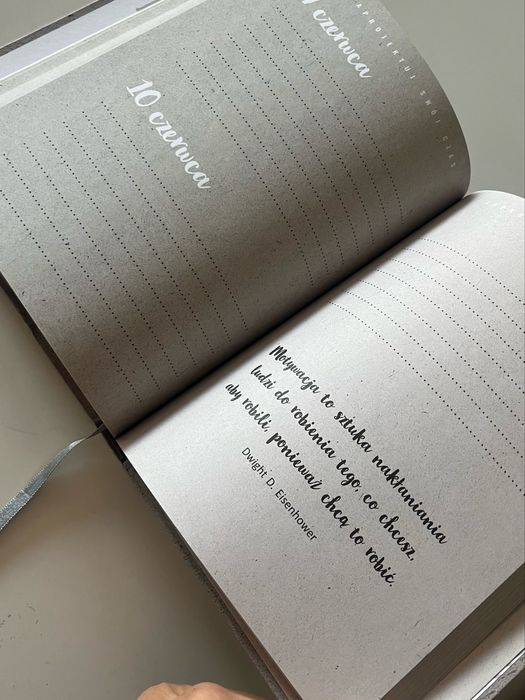 ZAPROJEKTUJ SWÓJ CZAS
czerwca
10 czerwca
Motywacja to sztuka nakłaniania
ludzi do robienia tego, co chcesz,
aby robili, ponieważ chcą to robić.
Dwight D. Eisenhower